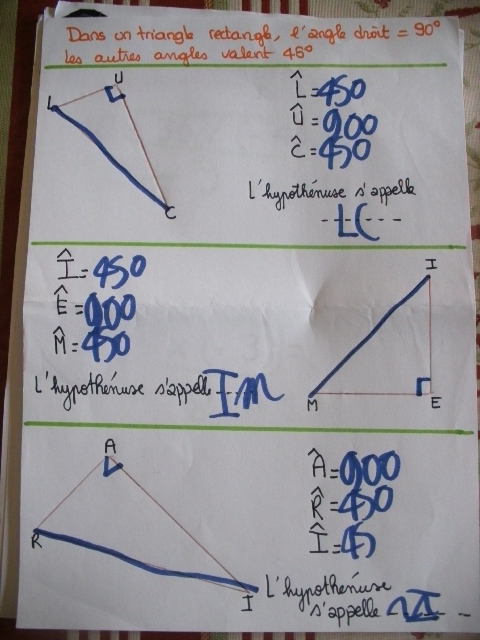 Dans un triangle rectangle, l'angle droit = 90°
les autres angles valent 45°
L
U
C
L̂=45°
Û=90°
Ĉ=45°
L'hypothénuse s'appelle
LC
Î=45°
Ê=90°
M̂=45°
L'hypothénuse s'appelle IM
I
M
E
A
R
I
Â=90°
R̂=45°
Î=45
L'hypothénuse
s'appelle